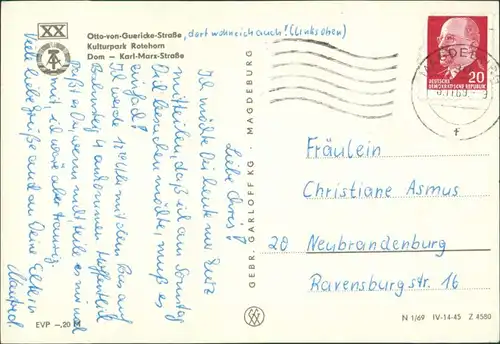 XX
Otto-von-Guericke-Straße, dort wohne ich auch! (links oben)
Kulturpark Rotehorn
Dom — Karl-Marx-Straße
Liebe Chris!
Ich möchte Dir heute nur kurz
mitteilen, daß ich am Sonntag
Dich besuchen möchte, muß es
einfach!
Ich werde 12 Uhr mit dem Bus auf
Bahnhof ankommen. Hoffentlich
paßt es Dir, wenn nicht teile es mir mal
mit, ich wäre aber traurig.
Viele liebe Grüße auch an Deine Eltern
Manfred
EVP —,20 M
GEBR. GARLOFF KG · MAGDEBURG
20
DEUTSCHE
DEMOKRATISCHE REPUBLIK
Fräulein
Christiane Asmus
20 Neubrandenburg
Ravensburgstr. 16
N 1/69 IV-14-45 Z 4580